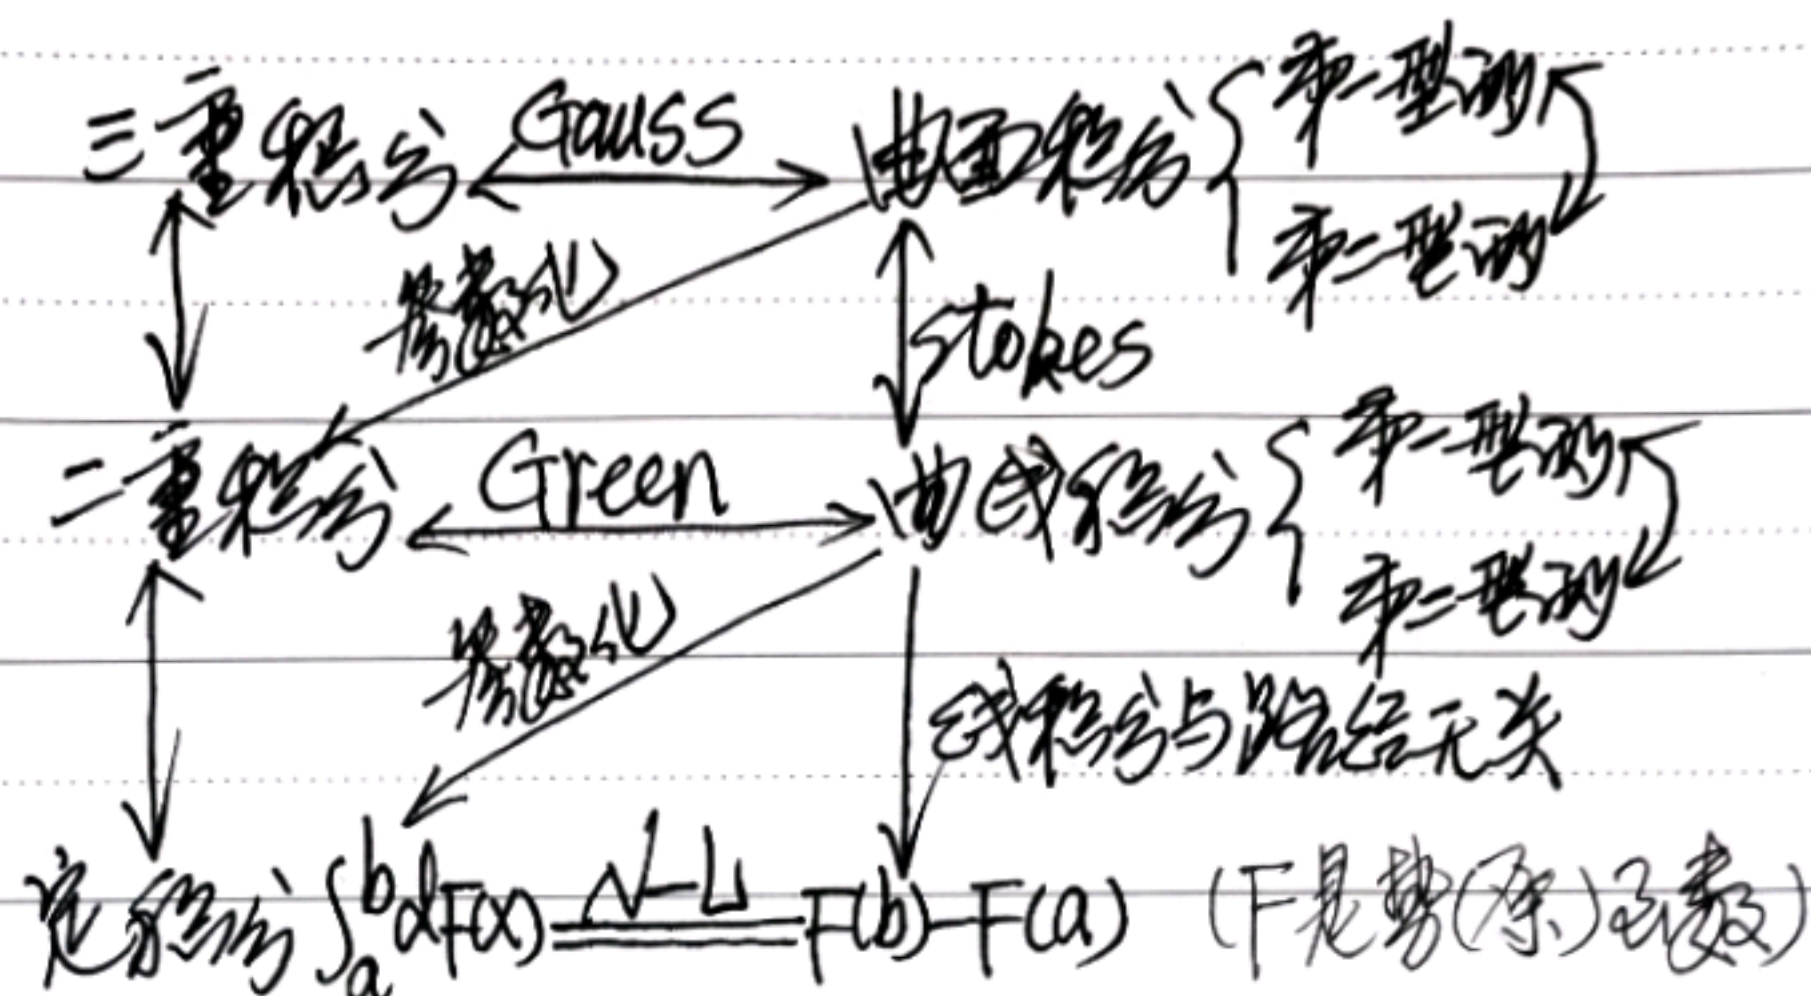 三重积分 Gauss 曲面积分 { 第一型的
第二型的
参数化
Stokes
二重积分 Green 曲线积分 { 第一型的
第二型的
参数化
线积分与路径无关
定积分 ∫_a^b dF(x) N-L F(b)-F(a) (F是势(原)函数)